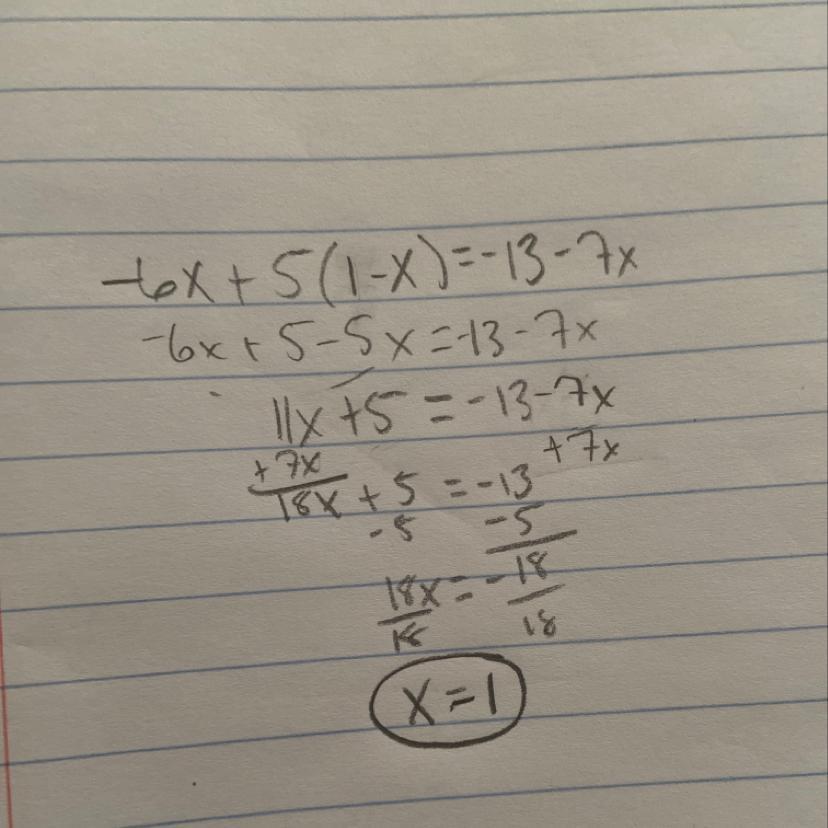 -6x + 5(1-x) = -13 - 7x
-6x + 5 - 5x = -13 - 7x
11x + 5 = -13 - 7x
+ 7x + 7x
18x + 5 = -13
- 5 - 5
18x = -18
18 18
x = 1